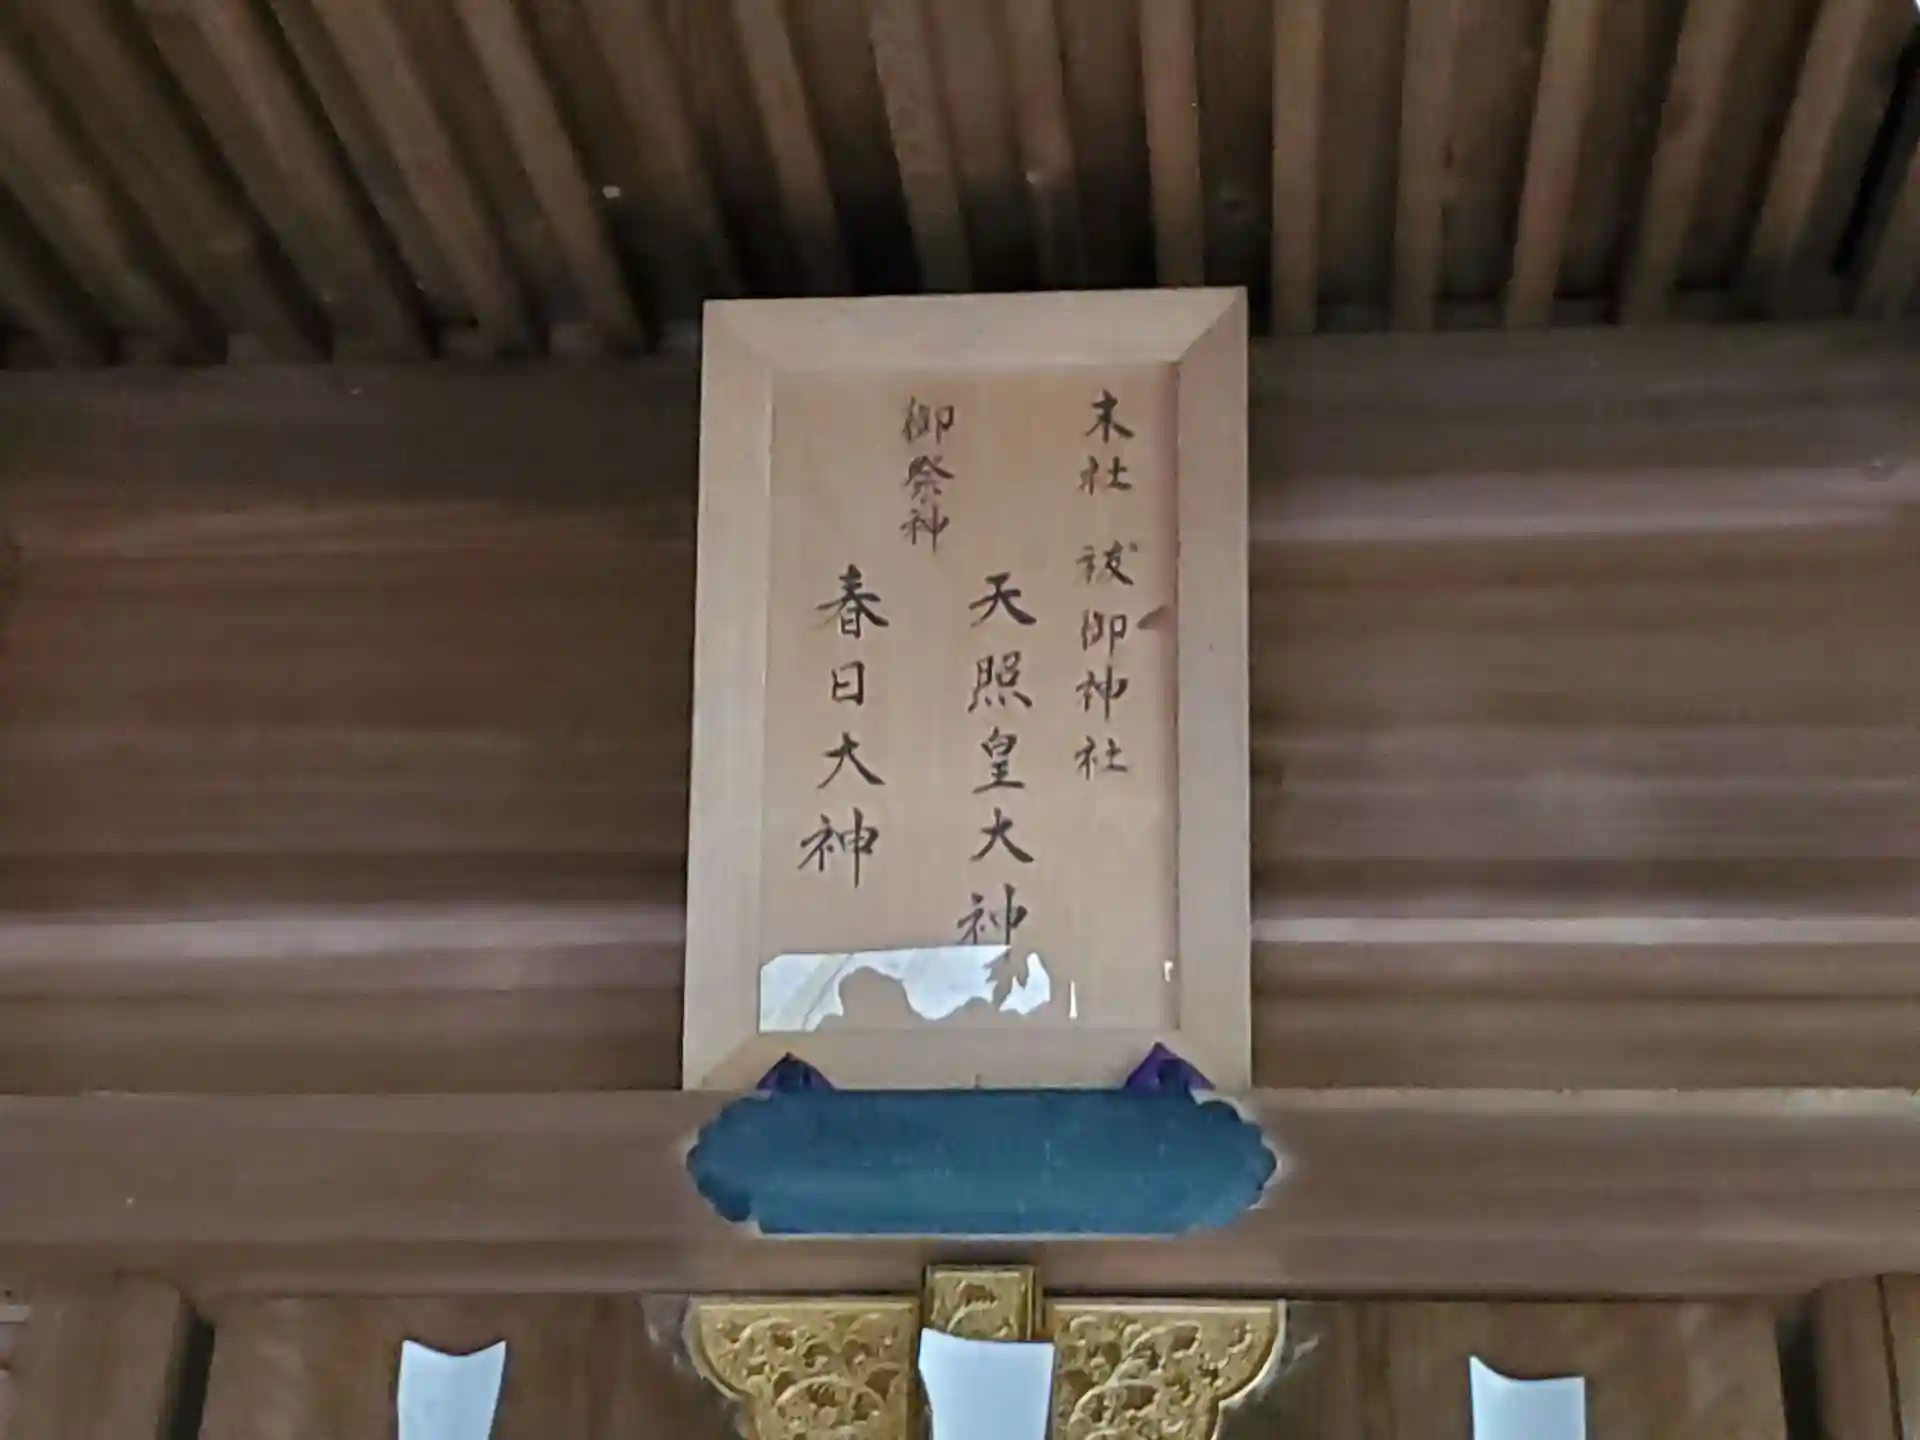 末社 祓御神社
天照皇大神
御祭神
春日大神